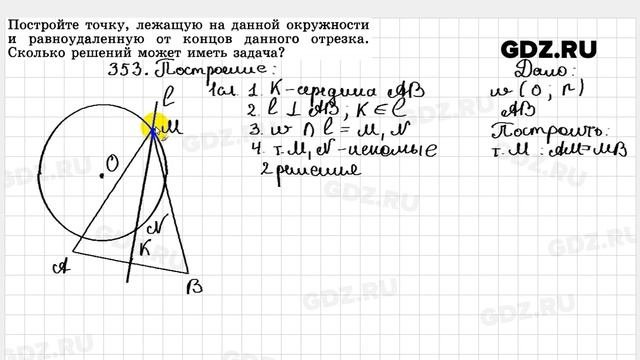 Постройте точку, лежащую на данной окружности
и равноудаленную от концов данного отрезка.
Сколько решений может иметь задача?
GDZ.RU
353. Построение:
1сл. 1. K-середина AB
2. l ⊥ AB ; K ∈ l
3. w ∩ l = M, N
4. т. M, N - искомые
2 решения
Дано:
w (O ; r)
AB
Построить:
т. M : AM=MB
l
M
O
N
K
A
B
GDZ.RU